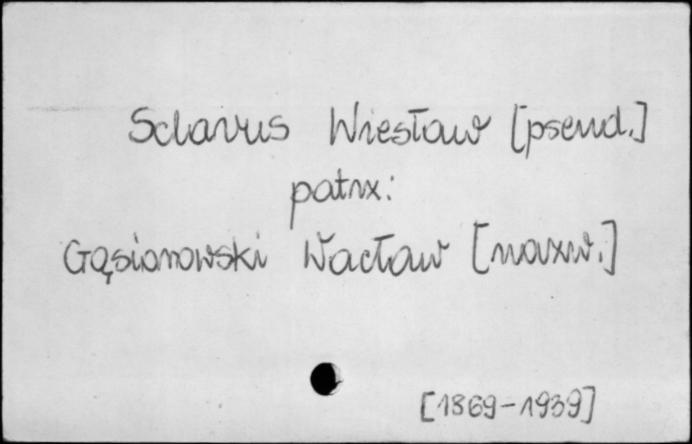 Sclavus Wiesław [pseud.]
patrz:
Gąsiorowski Wacław [nazw.]
[1869-1939]